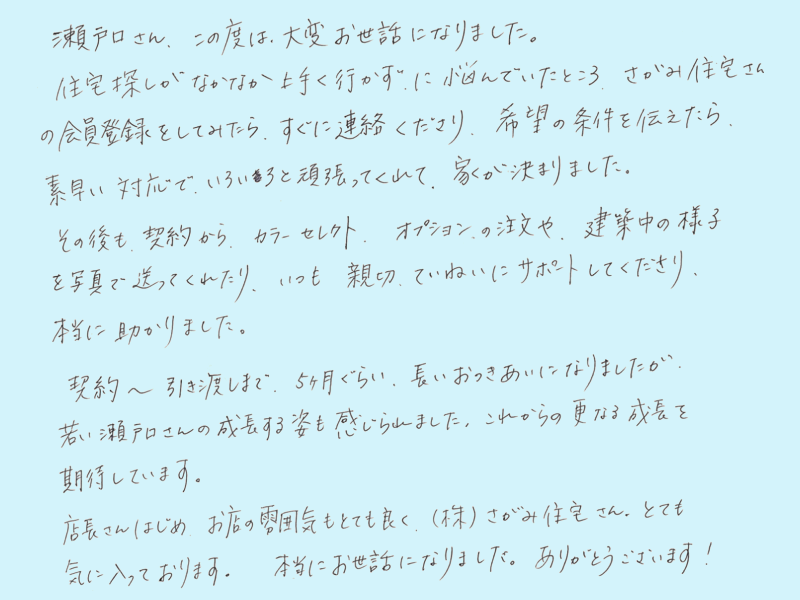 瀬戸口さん、この度は、大変お世話になりました。
住宅探しがなかなか上手く行かずに悩んでいたところ、さがみ住宅さん
の会員登録をしてみたら、すぐに連絡くださり、希望の条件を伝えたら、
素早い対応で、いろいろと頑張ってくれて、家が決まりました。
その後も、契約から、カラーセレクト、オプションの注文や、建築中の様子
を写真で送ってくれたり、いつも親切、ていねいにサポートしてくださり、
本当に助かりました。
契約〜引き渡しまで、5ヶ月ぐらい、長いおつきあいになりましたが、
若い瀬戸口さんの成長する姿も感じられました。これからの更なる成長を
期待しています。
店長さんはじめ、お店の雰囲気もとても良く、(株)さがみ住宅さん、とても
気に入っております。 本当にお世話になりました。ありがとうございます!